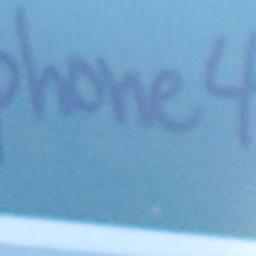 phone 4